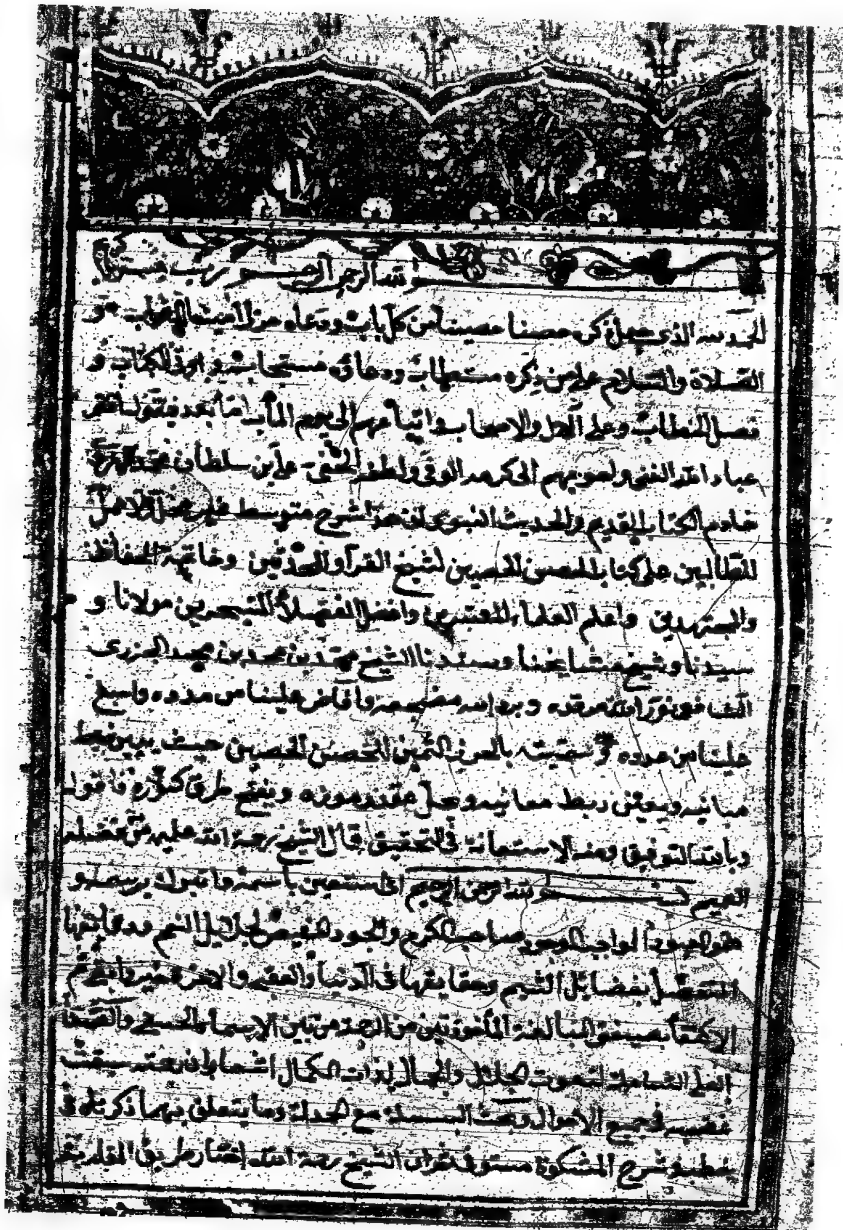 بسم الله الرحمن الرحيم رب
الحمد لله الذي جعل ذكره حصنا حصينا من كل باب ودعاه حرزا هو
الصلاة والسلام على من ذكره مستطاب ودعاؤه مستجاب و اوتي الكتاب و
فصل الخطاب وعلى الآل والاصحاب واتباعهم الى يوم المآب اما بعد فيقول افقر
عباد الله الغني واحوجهم الى كرمه الوفي ولطفه الخفي علي بن سلطان محمد الهروي
خادم الكتاب القديم والحديث النبوي ان هذا شرح متوسط
للطالبين على كتاب الحصن الحصين لشيخ القراء والمحدثين وخاتمة الحفاظ
والمجتهدين واعلم العلماء المعتبرين وافضل الفضلاء المتبحرين مولانا و
سيدنا وشيخ مشايخنا وسندنا الشيخ محمد بن محمد بن محمد الجزري
الشافعي نور الله مرقده وبرد الله مضجعه وافاض علينا من مدده واسبغ
علينا من عدده وسميته بالحرز الثمين للحصن الحصين حيث يبين ضبط
مبانيه ويعتني ربط معانيه ويحل عقد رموزه ويفتح طرق كنوزه فاقول
وبالله التوفيق ومنه الاستعانة في التحقيق قال الشيخ رحمة الله عليه من فضله
العميم بسم الله الرحمن الرحيم اي استعين باسمه واتبرك برسمه و
هو المعبود الواجب الوجود صاحب الكرم والجود المفيض لجلائل النعم ودقائقها
المتفضل بفضائل الشيم وحقايقها في الدنيا والعقبى والاخرة خير وابقى ثم
الاكتفاء بصيغتي المبالغة المأخوذتين من الرحمة من بين الاسماء الحسنى والصفات
العلى الشاملة لنعوت الجلال والجمال لذات الكمال اشعار بان رحمته سبقت
غضبه في جميع الاحوال وبحث البسملة مع الحمدلة وما يتعلق بهما ذكرناه في
خطبة شرح المشكوة مستوفى ثم ان الشيخ رحمه الله اختار طريق